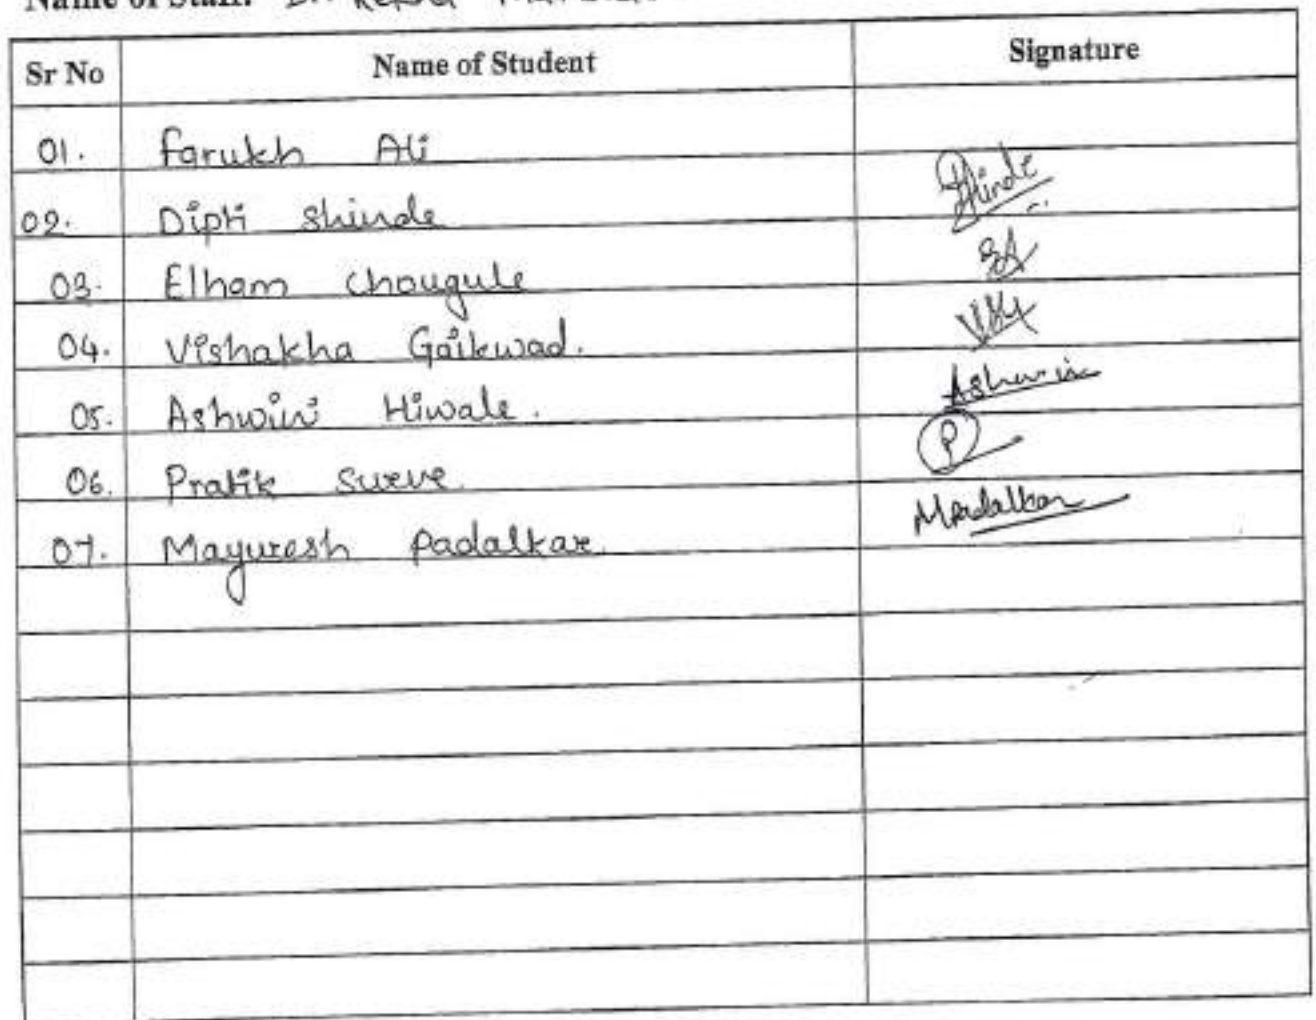 Name of Staff: Dr.
Sr No Name of Student Signature
01. Farukh Ali
02. Dipti Shinde Shinde
03. Elham Chougule
04. Vishakha Gaikwad.
05. Ashwini Hiwale. Ashwini
06. Pratik Surve. P
07. Mayuresh Padalkar. MPadalkar